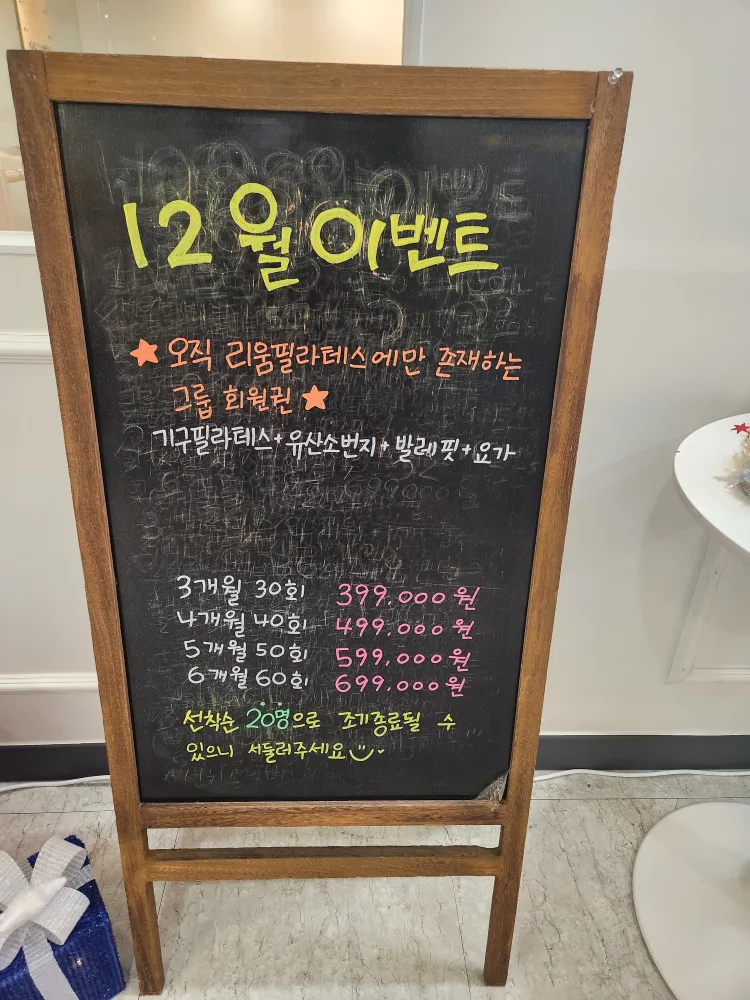 12월 이벤트
★ 오직 리움필라테스에만 존재하는
그룹 회원권 ★
기구필라테스+유산소번지+발레핏+요가
3개월 30회 399.000원
4개월 40회 499.000원
5개월 50회 599.000원
6개월 60회 699.000원
선착순 20명으로 조기종료될 수
있으니 서둘러주세요